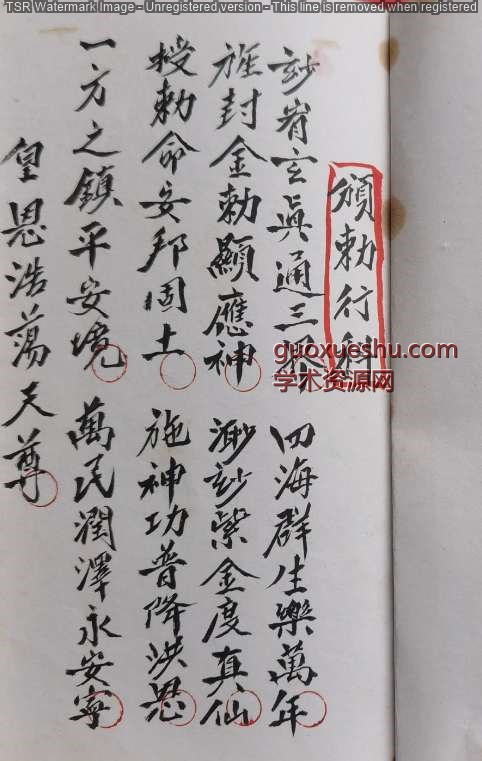 TSR Watermark Image - Unregistered version - This line is removed when registered
頒勅行科
玅玄眞通三 四海群生樂萬年
旌封金勅顯應神 渺玅紫金度真仙
授勅命安邦固土 施神功普降洪恩
一方之鎮平安境 萬民潤澤永安寧
皇恩浩蕩天尊
guoxueshu.com
学术资源网